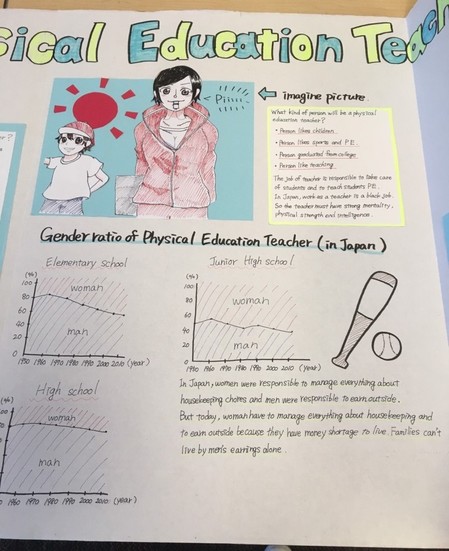 sical Education Teach
Piiii...
imagine picture.
What kind of person will be a physical
education teacher?
• Person likes children.
• Person likes sports and P.E.
• Person graduated from college
• Person like teaching
The job of teacher is responsible to take care
of students and to teach students P.E.
In Japan, work as a teacher is a black job.
So the teacher must have strong mentality,
physical strength and intelligence.
Gender ratio of Physical Education Teacher (in Japan)
Elementary school
(%)
100
80
60
40
20
0
woman
man
1950 1960 1970 1980 1990 2000 2010 (year)
Junior High school
(%)
100
80
60
40
20
0
woman
man
1950 1960 1970 1980 1990 2000 2010 (year)
High school
(%)
woman
man
1960 1970 1980 1990 2000 2010 (year)
In Japan, women were responsible to manage everything about
housekeeping chores and men were responsible to earn outside.
But today, woman have to manage everything about housekeeping and
to earn outside because they have money shortage to live. Families can't
live by men's earnings alone.